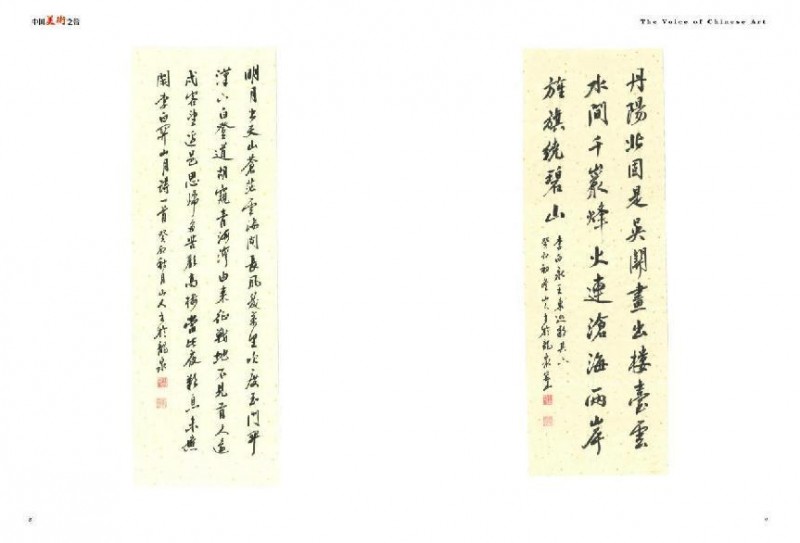 中国美術之音
The Voice of Chinese Art
明月出天山蒼茫雲海間長風幾萬里吹度玉門關
漢下白登道胡窺青海灣由來征戰地不見有人還
戍客望邊邑思歸多苦顏高樓當此夜歎息未應
閑李白關山月詩一首 秋月山人書於龍泉
丹陽北固是吳關畫出楼臺雲
水間千巖烽火連滄海兩岸
旌旗繞碧山
李白永王東巡歌其六